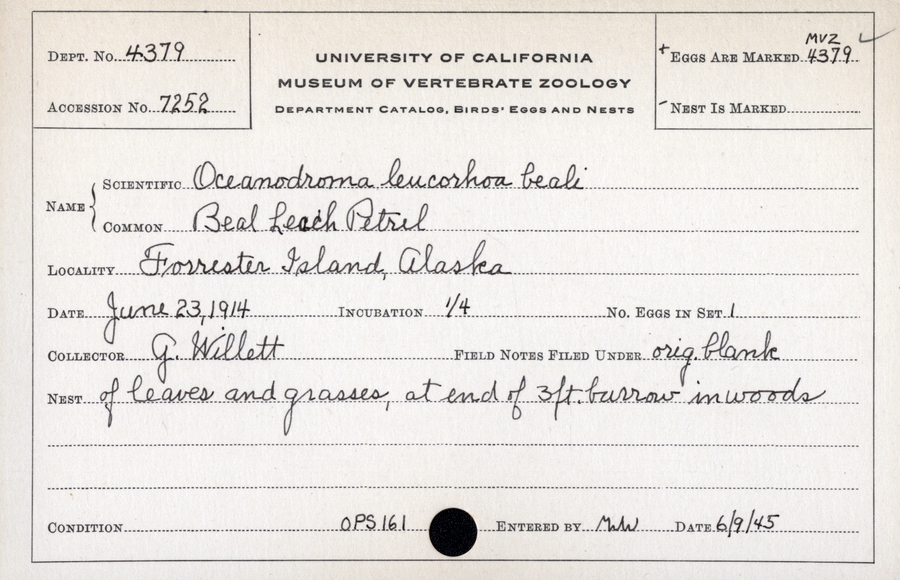 DEPT. No. 4379
ACCESSION No. 7252
UNIVERSITY OF CALIFORNIA
MUSEUM OF VERTEBRATE ZOOLOGY
DEPARTMENT CATALOG, BIRDS' EGGS AND NESTS
MVZ ✓
+ EGGS ARE MARKED 4379
- NEST IS MARKED
NAME { SCIENTIFIC Oceanodroma leucorhoa beali
COMMON Beal Leach Petrel
LOCALITY Forrester Island, Alaska
DATE June 23, 1914 INCUBATION 1/4 No. EGGS IN SET 1
COLLECTOR G. Willett FIELD NOTES FILED UNDER orig. blank
NEST of leaves and grasses, at end of 3 ft. burrow in woods
CONDITION OPS 161 ENTERED BY DATE 6/9/45